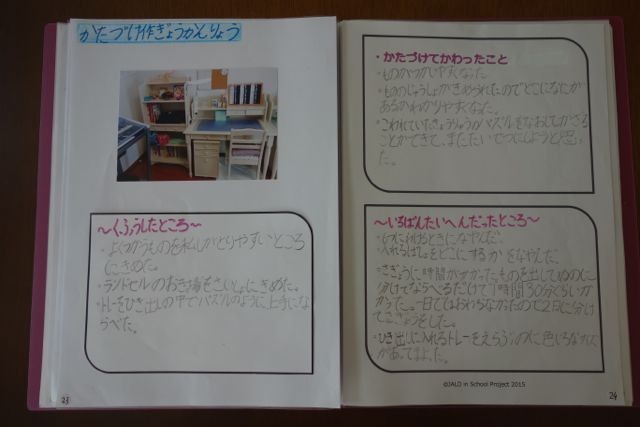 かたづけ作ぎょうかんりょう
～くふうしたところ～
・よくつかうものを私しがとりやすいところ
にきめた。
・ランドセルのおき場をさいしょにきめた。
・トレーをひき出しの中でパズルのように上手にな
らべた。
23
・かたづけてかわったこと
・ものがつかいやすくなった。
・もののじゅうしょがきめられたのでどこになにが
あるかわかりやすくなった。
・こわれていたきょうりゅうのパズルをなおしてかざる
ことができて、またたいせつにしようと思っ
た。
～いちばんたいへんだったところ～
入れるばしょをどこにするかをなやんだ。
・さぎょうに 時間がかかった
分けてならべるだけで1時間30分くらいか
かった。一日ではおわらなかったので2日に分け
てさぎょうをした。
・ひき出しに入れるトレーをえらぶのに色いろなサイズ
があってまよった。
©JALO in School Project 2015
24